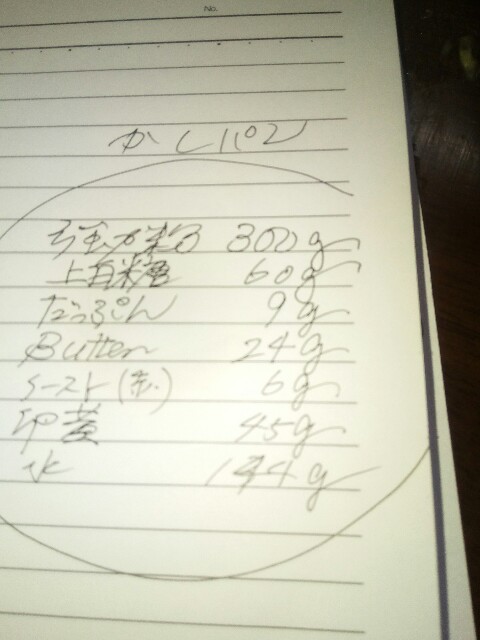 No.
かしパン
強力粉 300g
上白糖 60g
だっぷん 9g
Butter 24g
イースト(赤) 6g
卵黄 45g
水 144g